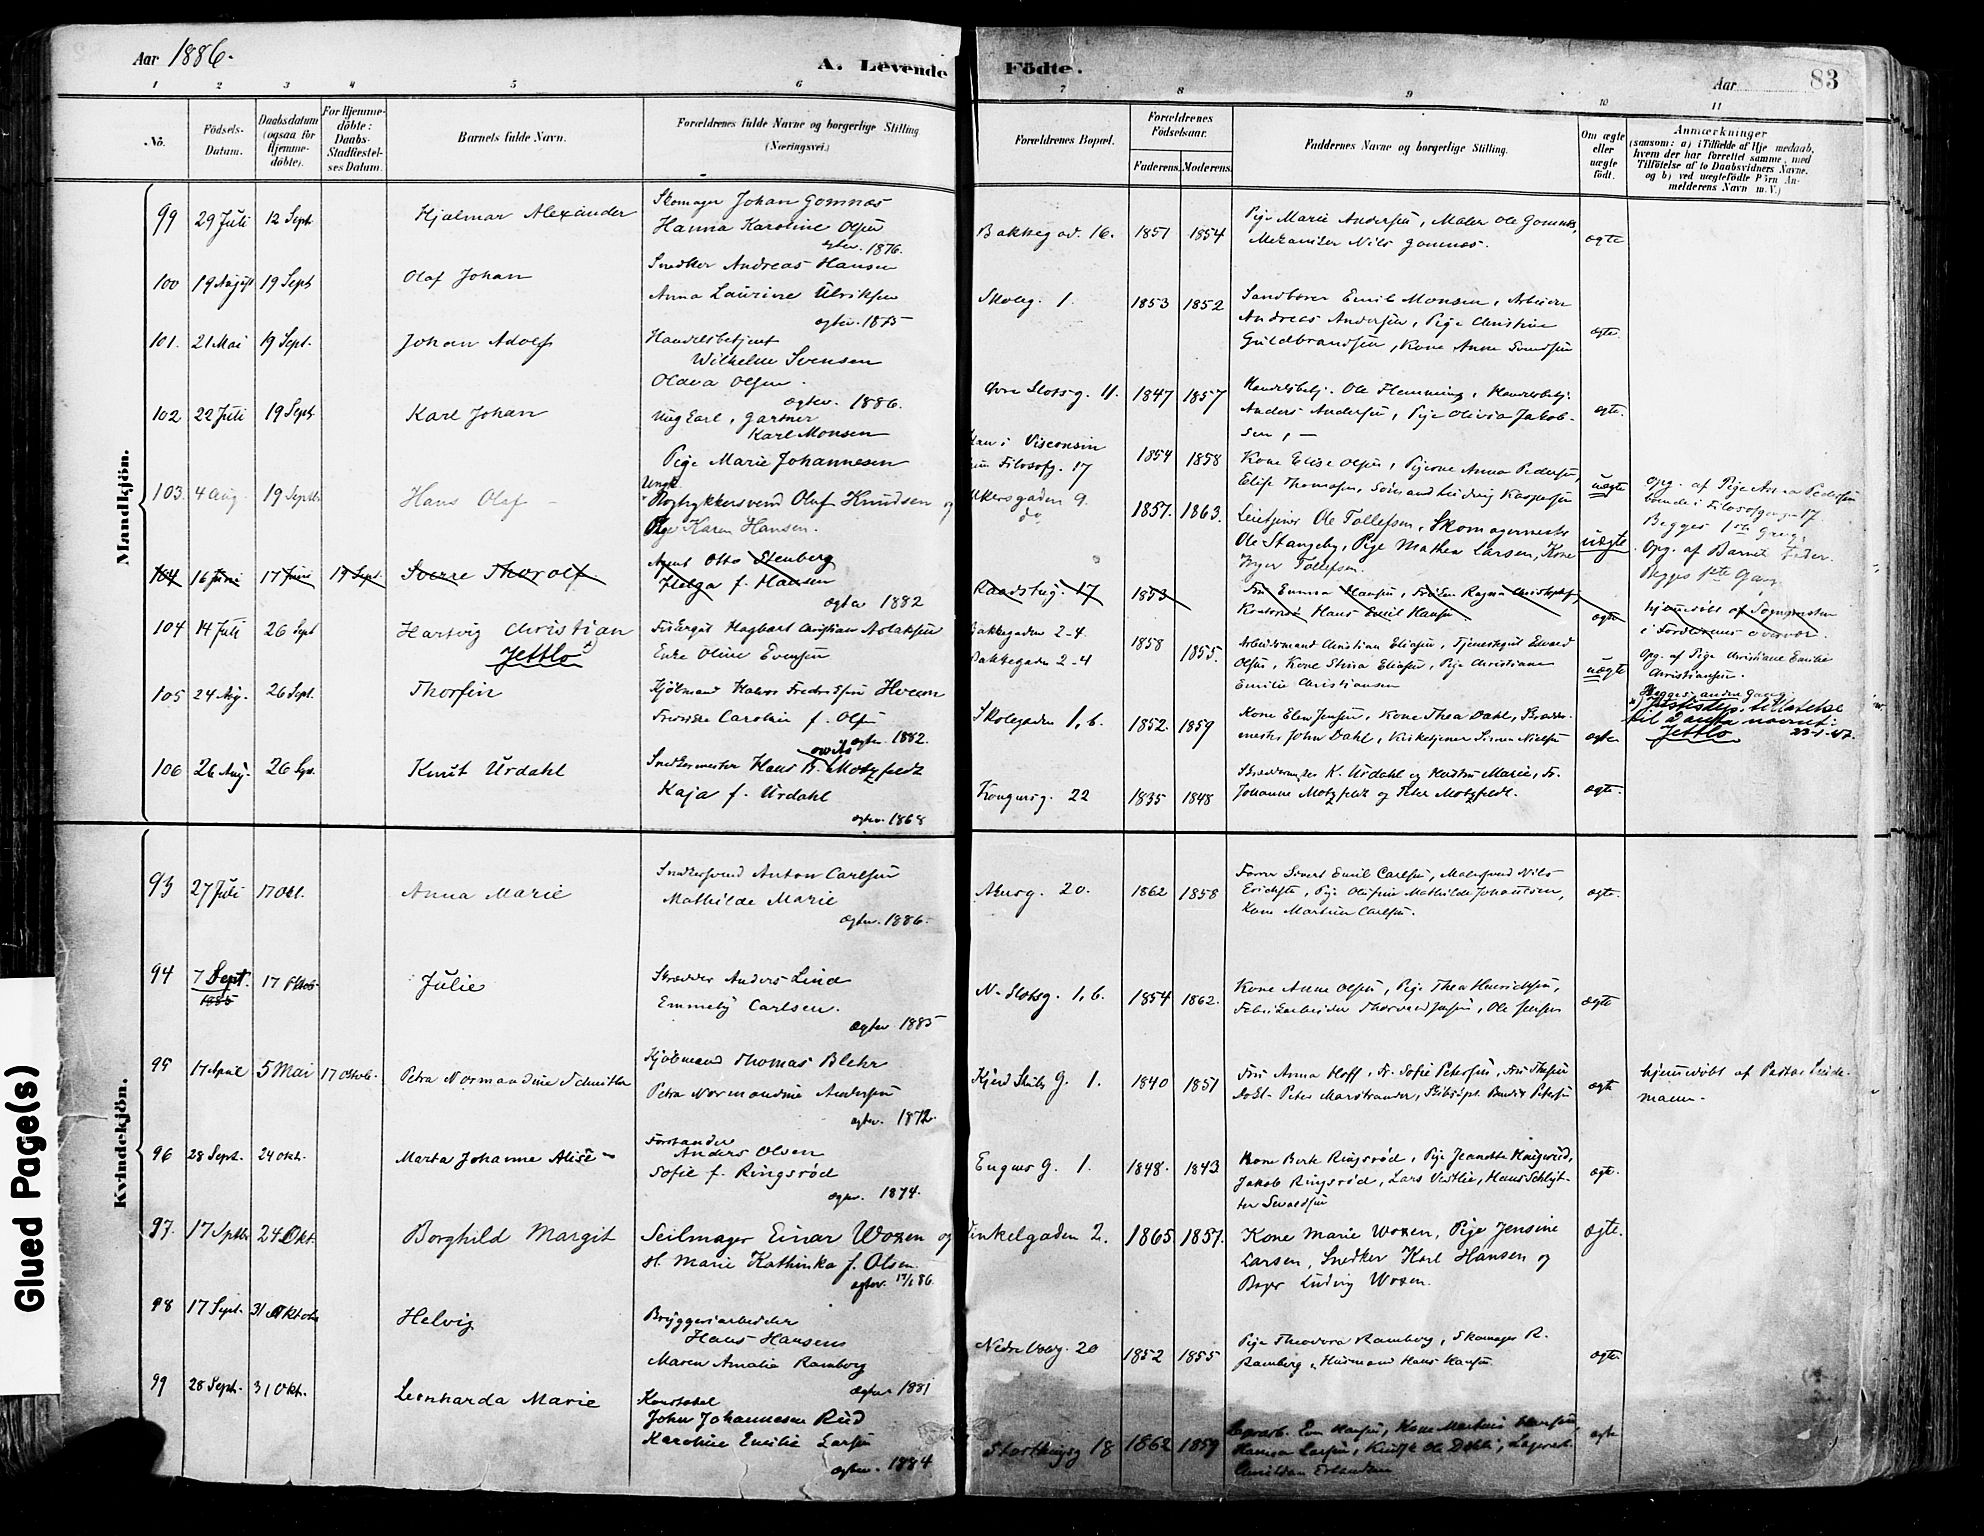 Aar 1886.
A. Levende Födte.
Aar 83
1 2 3 4 5 6 7 8 9 10 11
No.
Födsels-Datum.
Daabsdatum (ogsaa for Hjemme-döbte).
For Hjemme-döbte: Daabs-Stadfæstel-ses Datum.
Barnets fulde Navn.
Forældrenes fulde Navne og borgerlige Stilling (Næringsvei.)
Forældrenes Bopæl.
Forældrenes Födselsaar.
Faderens. Moderens.
Faddernes Navne og borgerlige Stilling.
Om ægte eller uægte født.
Anmærkninger
(saasom: a) i Tilfælde af Hjemmedaab,
hvem der har forrettet samme, med
Tilföielse af to Daabsvidners Navne.
og b) ved uægtefödte Börn An-
melderens Navn m. V.)
Mandkjön.
99 29 Juli 12 Sept Hjalmar Alexander
Skomager Johan Gomnæs
Hanna Karoline Olsen
ægtev. 1876.
Bakkegad. 16. 1851 1854
Pige Marie Andersen, Maler Ole Gomnæs,
Mekaniker Nils Gomnæs.
ægte
100 19 August 19 Sept Olaf Johan
Snedker Andreas Hansen
Anna Laurine Ulriksen
ægtev. 1875
Skoleg. 1. 1853 1852
Emil Monsen, Arbeider
Andreas Andersen, Pige Christine
Guldbrandsen, Kone Anne Svendsen
ægte.
101. 21 Mai 19 Sept. Johan Adolf
Handelsbetjent
Wilhelm Svensen
Olava Olsen.
ægtev. 1886.
Øvre Slotsg. 11. 1847 1857
Handelsbetj. Ole Flemming, Handelsbetj.
Anders Andersen, Pige Olivia Jakob-
sen, —
ægte.
102 22 Juli 19 Sept Karl Johan
Ung Carl, Gartner
Karl Monsen
Pige Marie Johannesen
Han i Visconsin
Hun Filosofg. 17
1854 1858
Kone Elise Olsen, Pigerne Anna Pedersen,
Elise Thomasen, Sömand Ludvig Kaspersen
uægte
Opg. af Pige Anna Pedersen
boende i Filosofgangen 17.
Begges 1ste Gang.
103. 4 Aug. 19 Septbr Hans Olaf
Ungk.
Bogtrykkersvend Olaf Knudsen og
Pige Karen Hansen.
Akersgaden 9.
do
1857. 1863.
Ole Tollefsen, Skomagermester
Ole Stangeby, Pige Mathea Larsen, Kone
Inger Tollefsen.
uægte
Opg. af Barnets Fader.
Begges 1ste Gang
104 16 Juni 17 Juni 19 Sept. Sverre Thorolf
Agent Otto Stenberg
Helga f. Hansen
ægtev 1882
Raadstug. 17 1853
Fru Emma Hansen, Frøken Ragna
Hans Emil Hansen
ægte
hjemmedöbt af Sognepresten
i Forældrenes overvær.
104 14 Juli 26 Sept Hartvig Christian
Jettlo
Hagbart Christian Aslaksen
Enke Oline Evensen
Bakkegaden 2-4
Bakkegaden 2-4
1858 1855.
Arbeidsmand Christian Eliasen, Tjenestegut Edvard
Olsen, Kone Stina Eliasen, Pige Christiane
Emilie Christiansen
uægte
Opg. af Pige Christiane Emilie
Christiansen.
Begges anden Gang.
x) Justisdep. tillatelse
til å anta navnet:
Jettlo 23-1-47.
105 24 Aug. 26 Sept. Thorfin
Kjöbmand Hans Fredriksen Hveem
Fredrikke Caroline f. Olsen
ægtev. 1882.
Skolegaden 1, b. 1852. 1859
Kone Elen Jensen, Kone Thea Dahl, Skrædder-
mester John Dahl, Kirketjener Simen Nielsen
ægte
106 26 Aug. 26 Sept. Knut Urdahl
Snedkermester Hans B. Motzfeldt
Kaja f. Urdahl
ægtev. 1868
Kongensg. 22 1835 1848
K. Urdahl og Hustru Marie, Fr.
Johanne Motzfeldt og Peter Motzfeldt.
ægte.
Kvindekjön.
93 27 Juli 17 Okt. Anna Marie
Snedkersvend Anton Carlsen
Mathilde Marie
ægtev. 1886.
Akersg. 20. 1862 1858
Sivert Emil Carlsen, Malersvend Nils
Erichsen, Pige Mathilde Johannesen,
Kone Martine Carlsen.
ægte.
94 7 Sept. 1885 17 Okt. Julie
Skrædder Anders Lind
Emmely Carlsen.
ægtev 1885
N. Slotsg. 1, b. 1854 1862.
Kone Anne Olsen, Pige Thea Henriksen,
Fabrikarbeider Thorvald Jensen, Ole Jensen
ægte
95 17 April 5 Mai 17 Oktob. Petra Normandine Schnitler
Kjöbmand Thomas Blehr
Petra Normandine Andersen
ægtev. 1872.
G. 1. 1840 1851
Fru Anna Hoff, Fr. Sofie Petersen, Fru Thesen
Peter Marstrander, Skibskpt. Bendix Petersen
ægte
hjemmedöbt af Pastor Linde-
mann.
96 28 Sept. 24 Okt. Marta Johanne Alise
Forstander
Anders Olsen
Sofie f. Ringsrød
ægtev. 1874.
Engens G. 1. 1848. 1843
Kone Berte Ringsrød, Pige Jeanette Ringsrød,
Jakob Ringsrød, Lars Vestlie, Hans
Sevaldsen
ægte.
97. 17 Septbr 24 Okt. Borghild Margit
Seilmager Einar Woxen og
H. Marie Kathinka f. Olsen.
ægtev. 17/1 86.
Vinkelgaden 2. 1865 1857.
Kone Marie Woxen, Pige Jensine
Larsen, Snedker Karl Hansen og
Bager Ludvig Woxen.
ægte.
98 17 Sept. 31 Oktober Helvig
Bryggeriarbeider
Hans Hansen
Maren Amalia Ramberg
ægtev 1881
Nedre 20 1852 1855
Pige Theodora Ramberg, Skomager R.
Ramberg, Husmand Hans Hansen
ægte
99 28 Sept. 31 Okt. Leonharda Marie
Konstabel
John Johannesen Rud
Karoline Emilie Larsen
ægtev. 1884
Storthingsg 18 1862 1859
Hansen, Kone Hansen
Hanna Larsen, Ole Dahl,
Erlandsen
ægte
Glued Page(s)